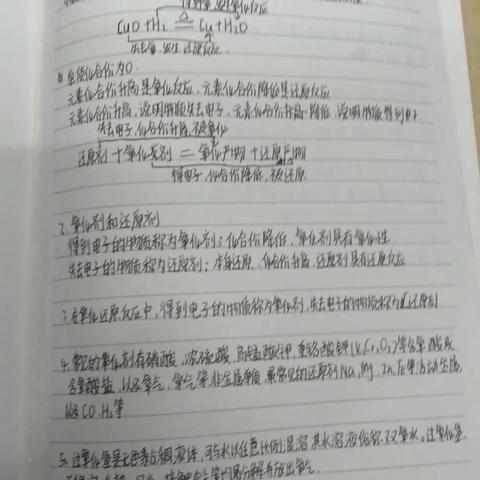 得到氧,发生氧化反应
CuO+H₂ =△= Cu+H₂O
失去氧,发生还原反应
单质化合价为0.
元素化合价升高是氧化反应,元素化合价降低是还原反应
元素化合价升高,说明物质失去电子,元素化合价降低,说明物质得到电子
失去电子,化合价升高,被氧化
还原剂+氧化剂=氧化产物+还原产物
得电子,化合价降低,被还原
2.氧化剂和还原剂
得到电子的物质称为氧化剂:化合价降低,氧化剂具有氧化性
失去电子的物质称为还原剂:本身还原,化合价升高,还原剂具有还原反应
3.在氧化还原反应中,得到电子的物质称为氧化剂,失去电子的物质称为还原剂
4.常见的氧化剂有硝酸,浓硫酸,高锰酸钾,重铬酸钾(K₂Cr₂O₇)等含氧酸或
含氧酸盐,以及氧气,氯气等非金属单质,最常见的还原剂Na,Mg,Zn,Fe等活动金属,
以及CO,H₂等
5.过氧化氢是无色黏稠液体,可与水以任意比例混溶其水溶液俗称双氧水。过氧化氢
分解并放出氧气